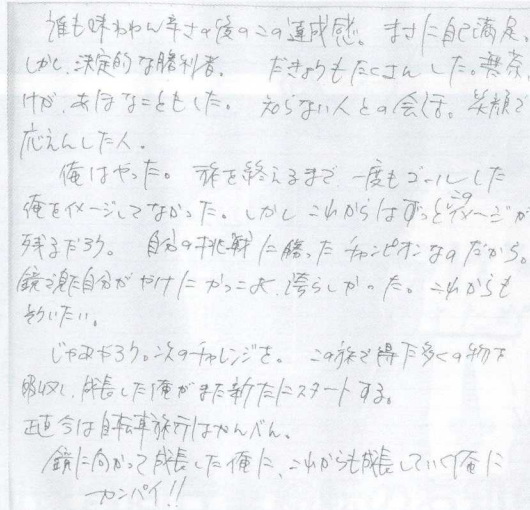 誰も味わわん辛さの後のこの達成感。まさに自己満足。
しかし、決定的な勝利者。 だきょうもたくさんした。無茶
けが、あほなこともした。 知らない人との会话。笑顔で
応えんした人。
俺はやった。旅を終えるまで、一度もゴールした
俺をイメージしてなかった。しかしこれからはずっとこのイメージが
残るだろう。 自分の挑戦に勝ったチャンピオンなのだから。
鏡で見た自分がやけにかっこよく、誇らしかった。これからも
いたい。
じゃあやろう。次のチャレンジを。 この旅で得た多くの物を
吸収し、成長した俺がまた新たにスタートする。
正直今は自転車旅行はかんべん。
鏡に向かって成長した俺に、これからも成長していく俺に
カンパイ!!